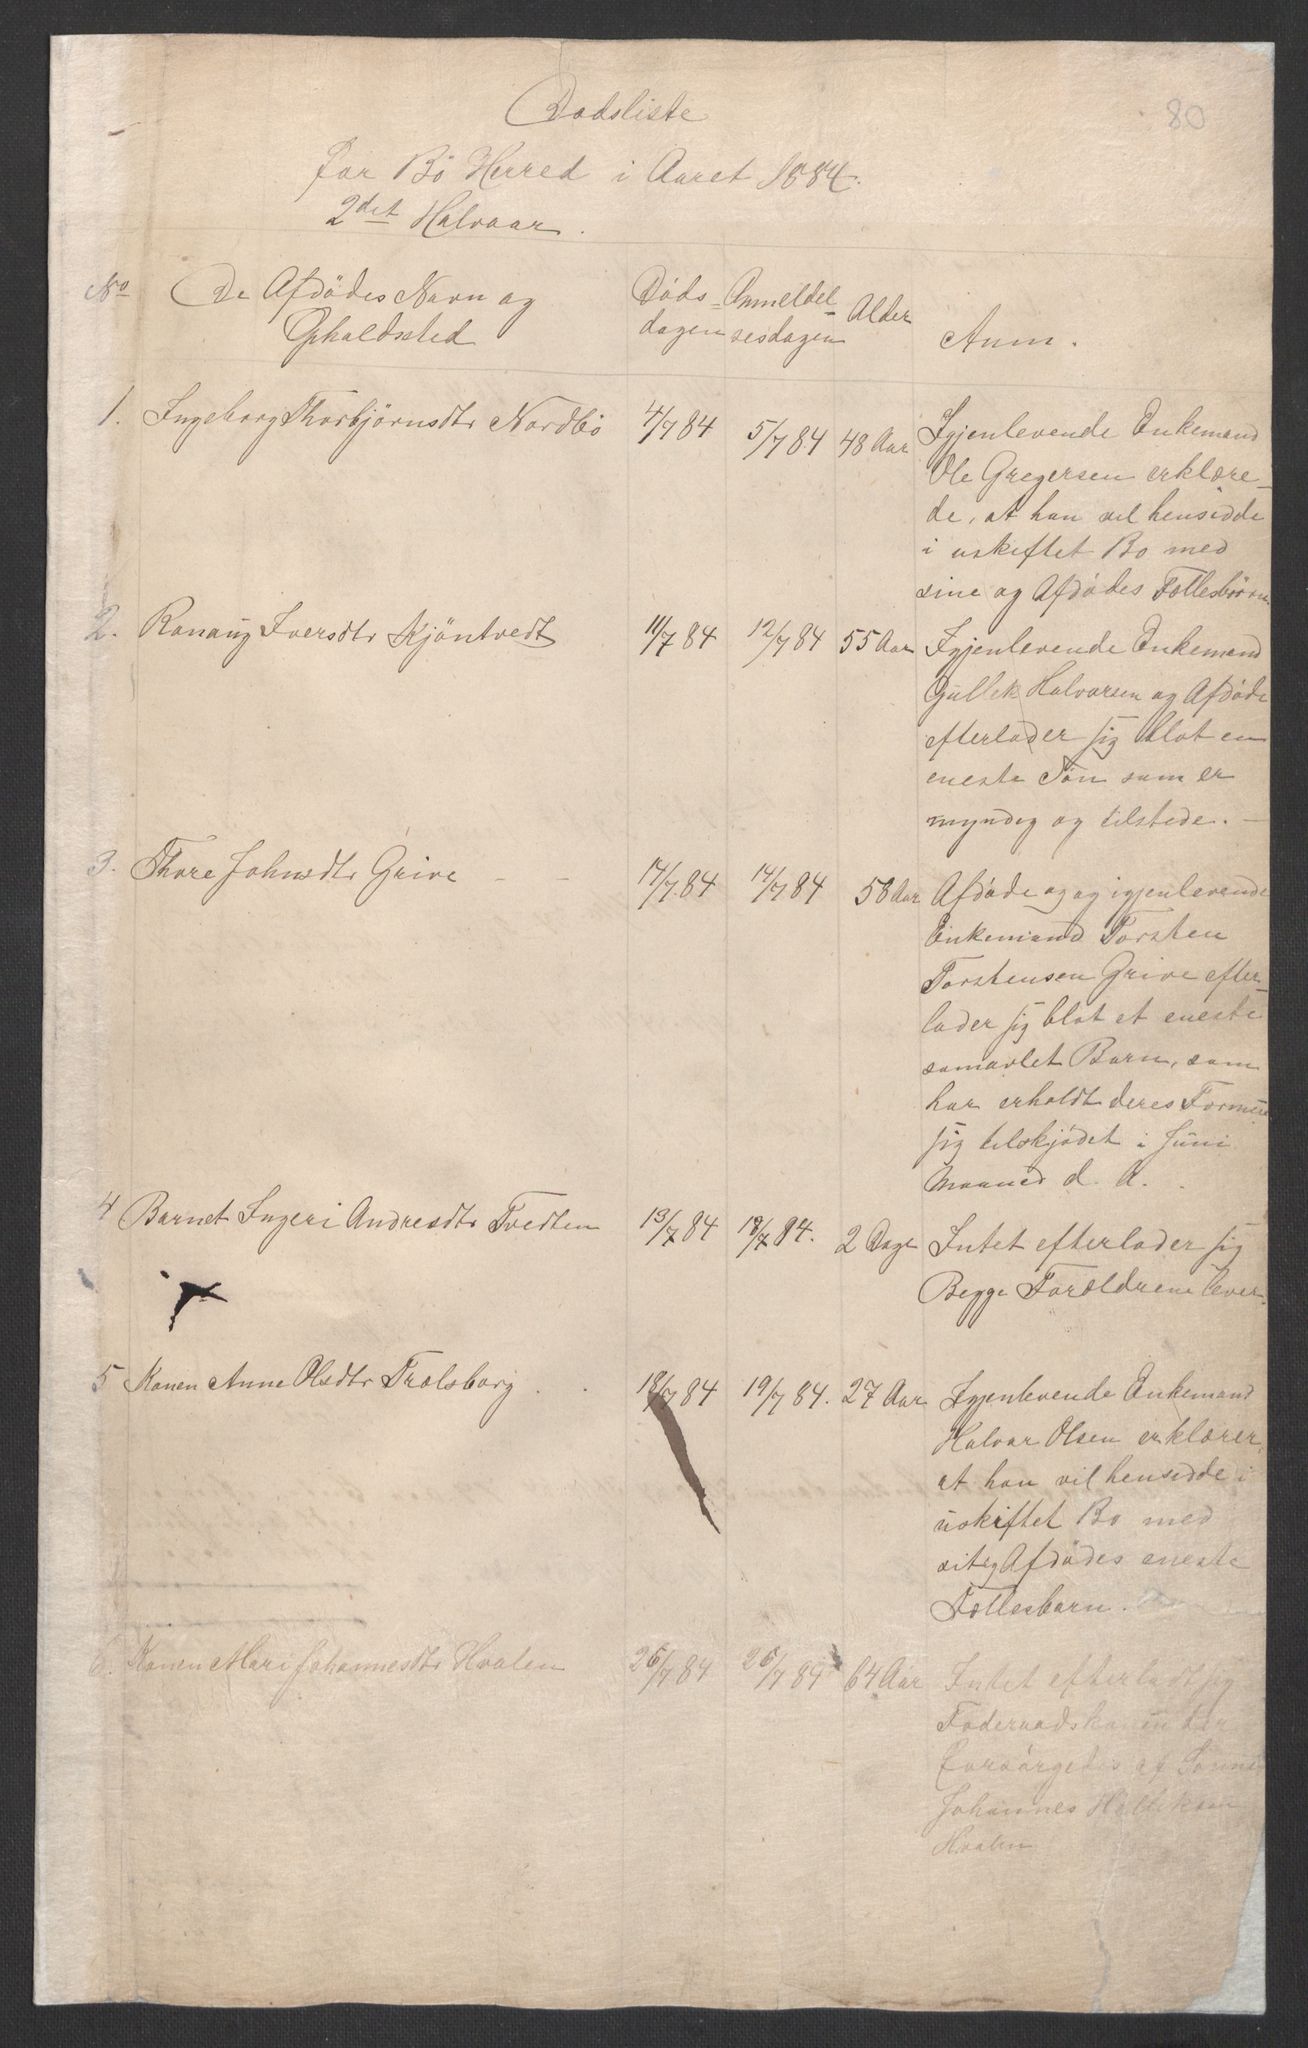 80
Dødsliste
for Bö Herred i Aaret 1884.
2det Halvaar.
No De Afdödes Navn og Opholdssted Döds-dagen Anmeldel-sesdagen Alder Anm.
1. Ingeborg Thorbjörnsdtr Nordbö 4/7 84 5/7 84 48 Aar Igjenlevende Enkemand
Ole Gregersen erklære-
de, at han vil hensidde
i uskiftet Bo med
sine og Afdødes Fællesbörn
2. Ranaug Iversdtr Kjöntvedt 11/7 84 12/7 84 55 Aar Igjenlevende Enkemand
Gullek Halvorsen og Afdøde
efterlader sig blot en
eneste Søn som er
myndig og tilstede. -
3. Thore Johnsdtr Grive - - 14/7 84 14/7 84 58 Aar Afdøde og og igjenlevende
Enkemand Torsten
Torstensen Grive efter-
lader sig blot et eneste
samavlet Barn, som
har erholdt deres Formue
sig tilskjødet i Juni
Maaned d. A.
4 Barnet Ingeri Andresdtr Tvedten 13/7 84 18/7 84. 2 Dage Intet efterlader sig
Begge Forældrene lever.
5 Konen Anne Olsdtr Trolsborg . . 18/7 84 19/7 84. 27 Aar Igjenlevende Enkemand
Halvor Olsen erklærer,
at han vil hensidde i
uskiftet Bo med
sit og Afdødes eneste
Fællesbarn.
6. Konen Mari Johannesdtr Hvalen 26/7 84 26/7 84 64 Aar Intet efterladt sig
Föderaadskonen der
forsörgedes af Sønnen
Johannes
Hvalen